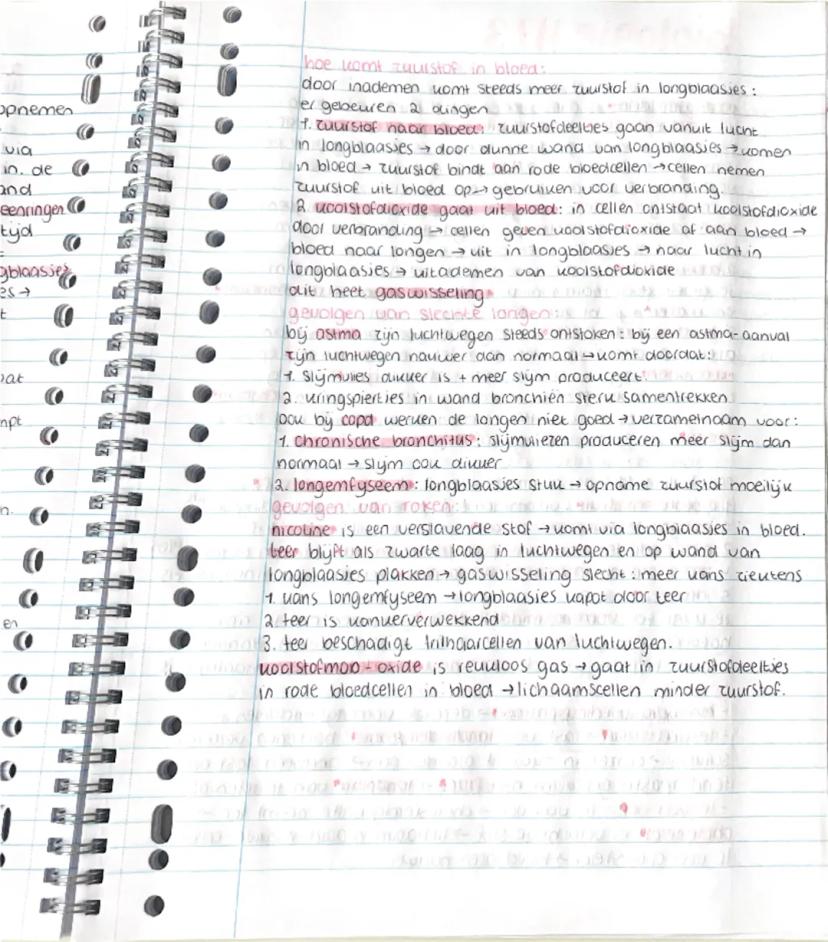 opnemen
via
in. de
and
eenringen
tijd
gblaasjes
es →
t
pat
mpt
n.
en
hoe komt zuurstof in bloed:
door inademen komt steeds meer zuurstof in longblaasjes:
er gebeuren 2 dingen
1. zuurstof naar bloed: zuurstofdeeltjes gaan vanuit lucht
in longblaasjes → door dunne wand van longblaasjes → komen
in bloed → zuurstof bindt aan rode bloedcellen → cellen nemen
zuurstof uit bloed op → gebruiken voor verbranding.
2. koolstofdioxide gaat uit bloed: in cellen ontstaat koolstofdioxide
door verbranding → cellen geven koolstofdioxide af aan bloed →
bloed naar longen → uit in longblaasjes → naar lucht in
longblaasjes → uitademen van koolstofdioxide
dit heet gaswisseling
gevolgen van slechte longen:
bij astma zijn luchtwegen steeds ontstoken: bij een astma-aanval
zijn luchtwegen nauwer dan normaal → komt doordat:
1. slijmvlies dikker is + meer slijm produceert.
2. kringspiertjes in wand bronchiën sterk samentrekken
ook bij copd werken de longen niet goed → verzamelnaam voor:
1. chronische bronchitus: slijmvliezen produceren meer slijm dan
normaal → slijm ook dikker
2. longemfyseem: longblaasjes stuk → opname zuurstof moeilijk
gevolgen van roken:
nicotine is een verslavende stof → komt via longblaasjes in bloed.
teer blijft als zwarte laag in luchtwegen en op wand van
longblaasjes plakken → gaswisseling slecht: meer kans ziektens
1. kans longemfyseem → longblaasjes kapot door teer
2. teer is kankerverwekkend
3. teer beschadigt trilhaarcellen van luchtwegen.
koolstofmon-oxide is reukloos gas → gaat in zuurstofdeeltjes
in rode bloedcellen in bloed → lichaamscellen minder zuurstof.